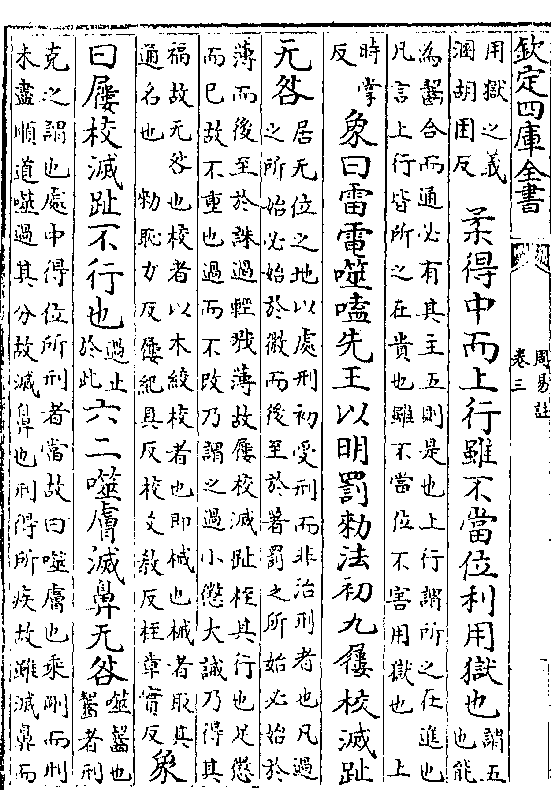 欽定四庫全書
周易註
卷三
用獄之義
溷胡困反
柔得中而上行雖不當位利用獄也
謂五
也能
為齧合而通必有其主五則是也上行謂所之在進也
凡言上行皆所之在貴也雖不當位不害用獄也 上
時掌
反
象曰雷電噬嗑先王以明罰勑法初九屨校滅趾
无咎
居无位之地以處刑初受刑而非治刑者也凡過
之所始必始於微而後至於著罰之所始必始於
薄而後至於誅過輕戮薄故屨校滅趾桎其行也足懲
而已故不重也過而不改乃謂之過小懲大誡乃得其
福故无咎也校者以木絞校者也即械也械者取其
通名也 勑恥力反屨紀具反校爻教反桎章實反
象
曰屨校滅趾不行也
過止
於此
六二噬膚滅鼻无咎
噬齧也
齧者刑
克之謂也處中得位所刑者當故曰噬膚也乘剛而刑
未盡順道噬過其分故滅鼻也刑得所疾故雖滅鼻而